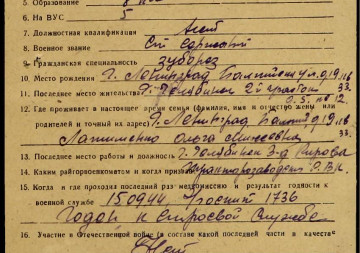 5. Образование
6. На ВУС 5
7. Должностная квалификация нет
8. Военное звание Ст сержант
9. Гражданская специальность зуборез
10. Место рождения г. Ленинград Балтийская ул. д 19
11. Последнее место жительства г. Челябинск 2й участок
12. Где проживает в настоящее время семья (фамилия, имя и отчество жены или
родителей и точный их адрес) г. Ленинград д 19
Ольга
13. Последнее место работы и должность г. Челябинск з-д Кирова
14. Каким райгорвоенкоматом и когда призван Тракторозаводск. Р.В.К.
15. Когда и где проходил последний раз медкомиссию и результат годности к
военной службе 150944, Госпит 1736
Годен к строевой службе
16. Участие в Отечественной войне (в составе какой последней части в качестве
Нет